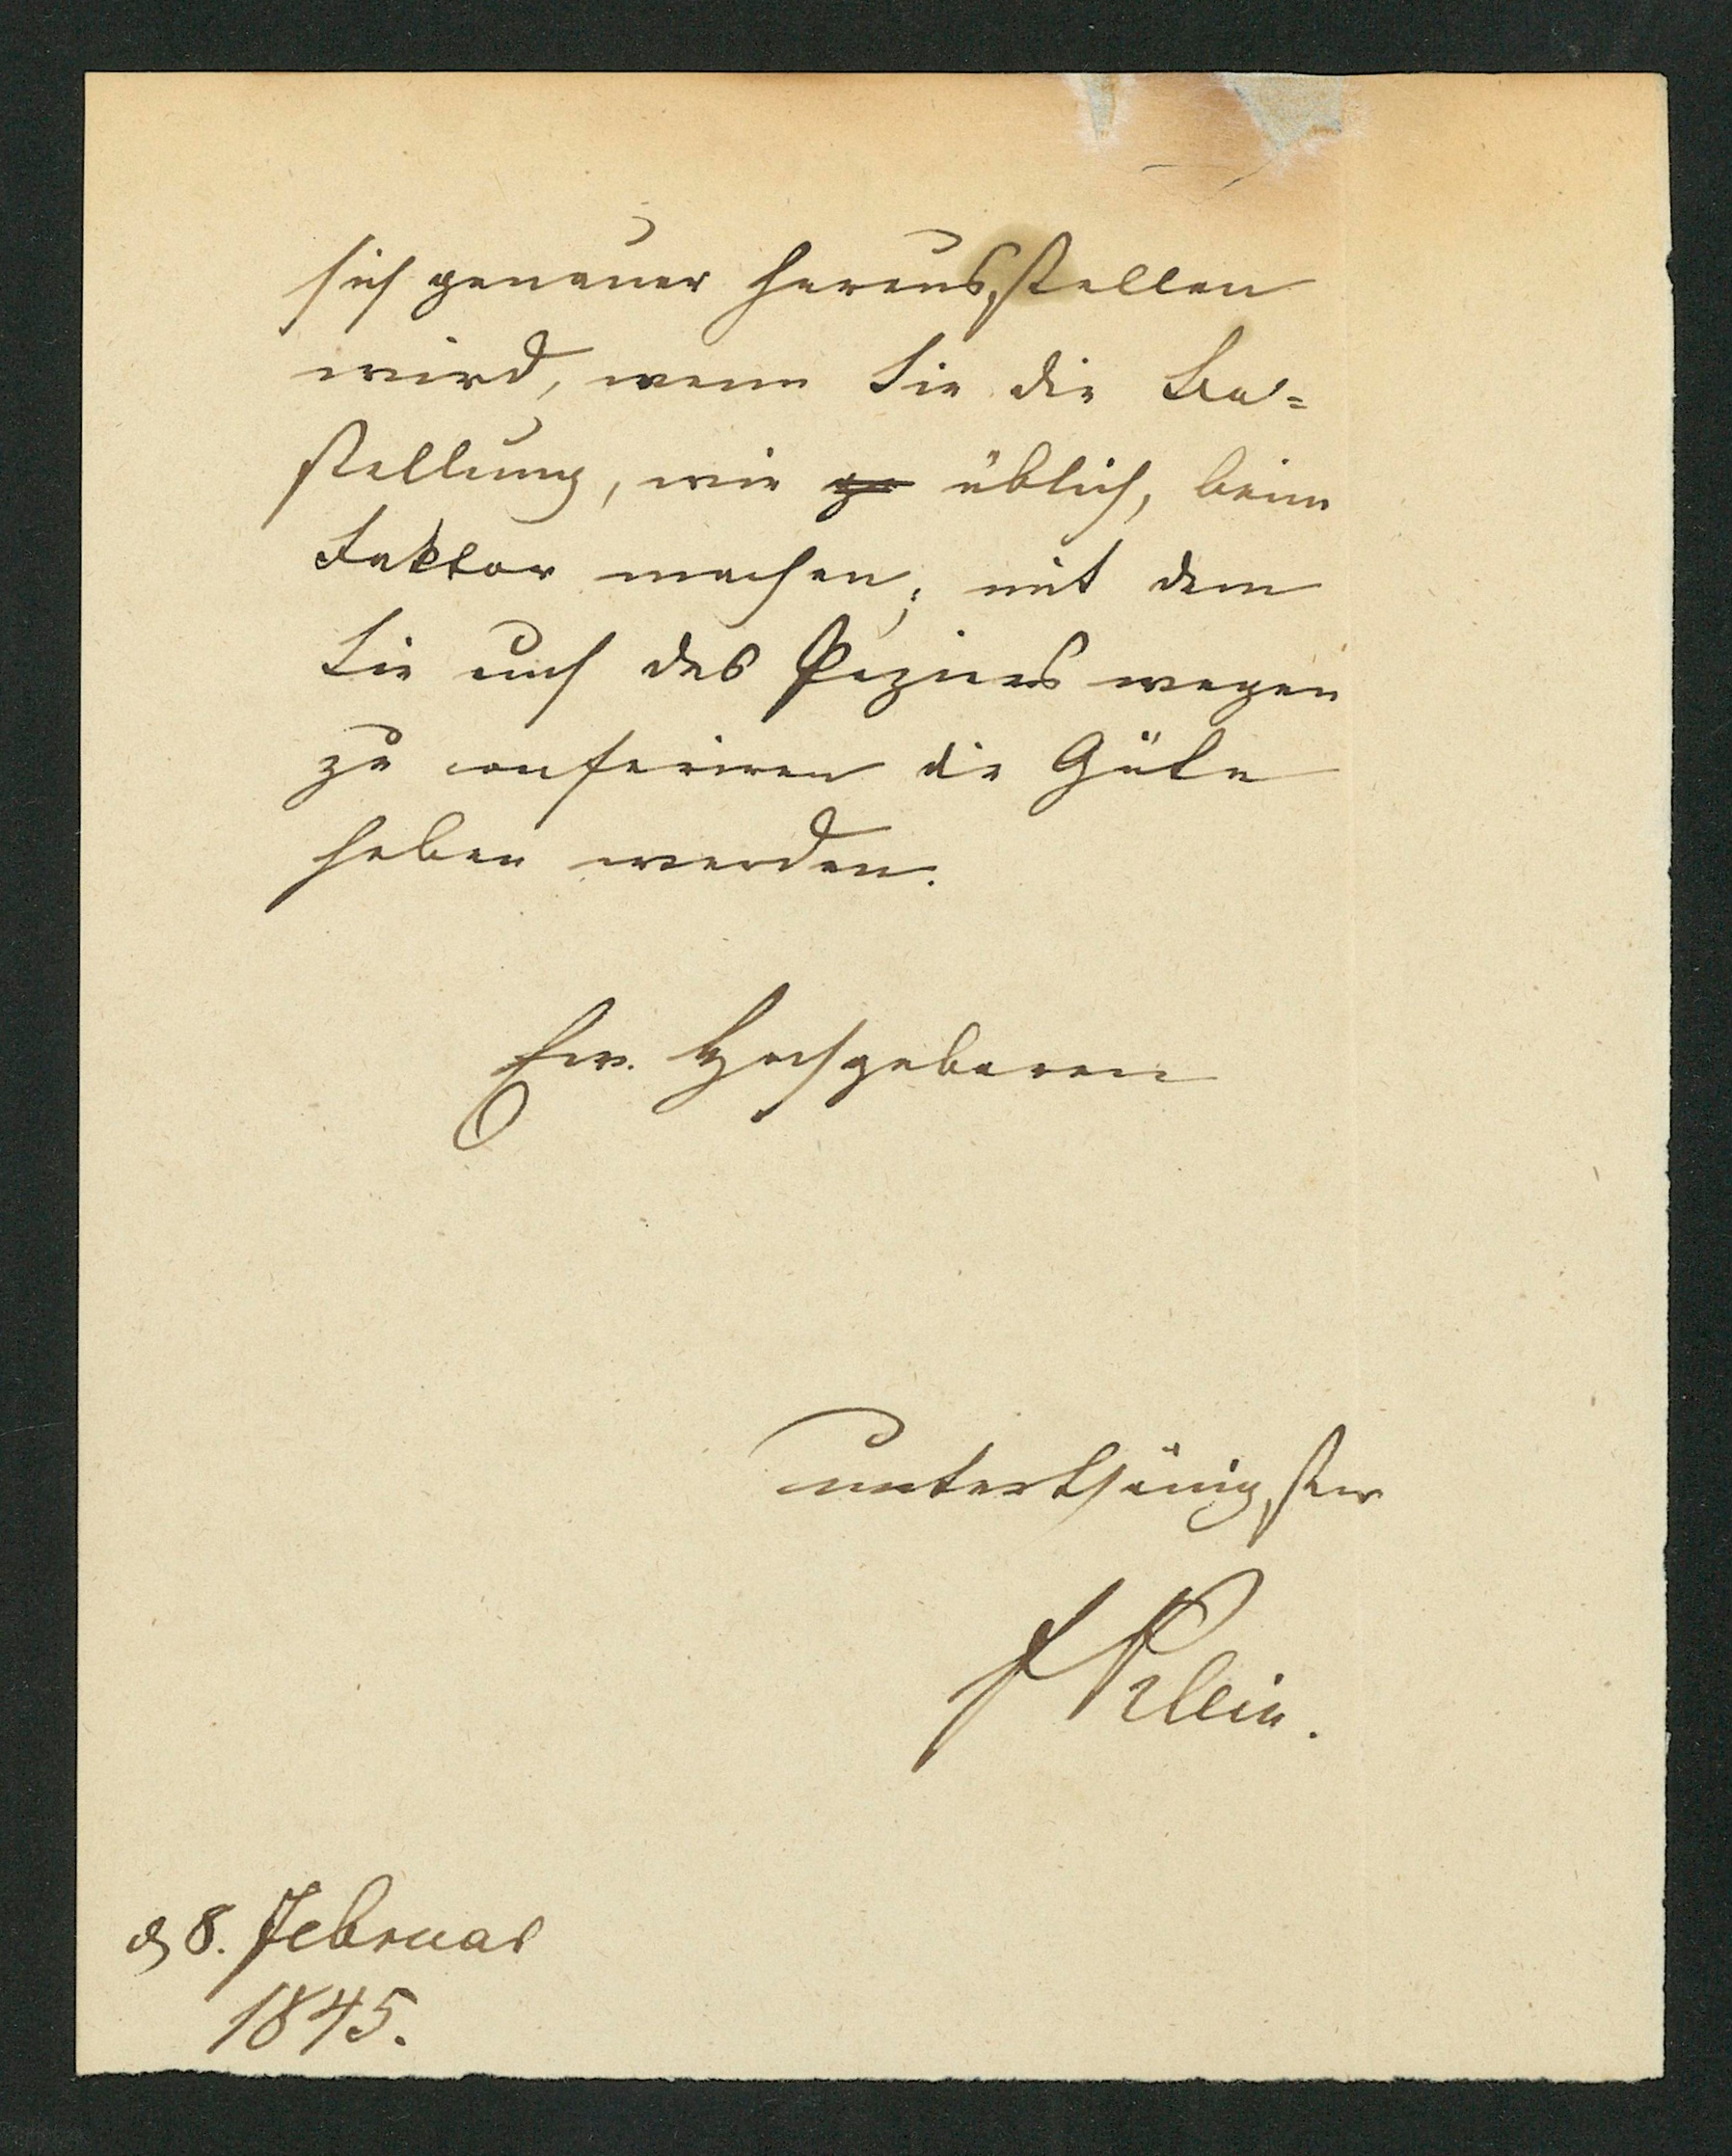 sich genauer herausstellen
wird, wenn Sie die Be=
stellung, wie ge üblich, beim
Faktor machen; mit dem
Sie auch des Papiers wegen
zu conferiren die Güte
haben werden.
Ew. Hochgeboren
unterthänigster
F Klein.
d 8. Februar
1845.